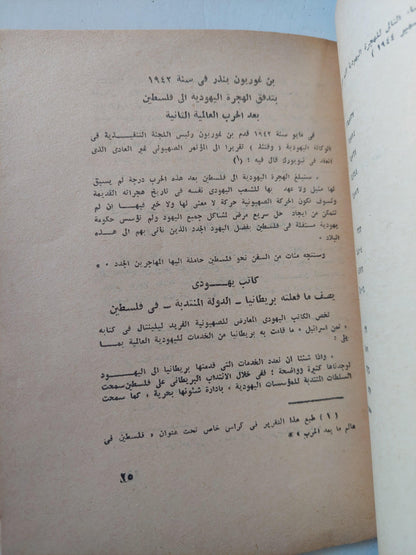 بن غوريون ينذر فى سنة ١٩٤٢
بتدفق الهجرة اليهودية الى فلسطين
بعد الحرب العالمية الثانية
فى مايو سنة ١٩٤٢ قدم بن غوريون رئيس اللجنة التنفيذية فى
الوكالة اليهودية ( وقتئذ ) تقريرا الى المؤتمر الصهيونى غير العادى الذى
انعقد فى نيويورك قال فيه : (١)
ستبلغ الهجرة اليهودية الى فلسطين بعد هذه الحرب درجة لم يسبق
لها مثيل ولا عهد بها للشعب اليهودى نفسه فى تاريخ هجراته القديمة
وتسوف تكون الحركة الصهيونية حركة لا معنى لها ولا خير فيها ان لم
تتمكن من ايجاد حل سريع مرض لمشاكل جميع اليهود ولم تؤسس حكومة
يهودية مستقلة فى فلسطين بفضل اليهود الجدد الذين تأتى بهم الى هذه
البلاد ٠
وستتجه مئات من السفن نحو فلسطين حاملة اليها المهاجرين الجدد ٠ »
كاتب يهودى
يصف ما فعلته بريطانيا ـ الدولة المنتدبة ـ فى فلسطين
لخص الكاتب اليهودى المعارض للصهيونية الفريد ليلينتال فى كتابه
« ثمن اسرائيل » ما قامت به بريطانيا من الخدمات لليهودية العالمية بما
يلى :
« واذا شئنا ان نعدد الخدمات التى قدمتها بريطانيا الى اليهود
لوجدناها كثيرة وواضحة ؛ ففى خلال الانتداب البريطانى على فلسطين سمحت
السلطات المنتدبة للمؤسسات اليهودية ، بادارة شئونها بحرية ، كما سمحت
(١) طبع هذا التقرير فى كراس خاص تحت عنوان « فلسطين فى
عالم ما بعد الحرب » ٠
٢٥